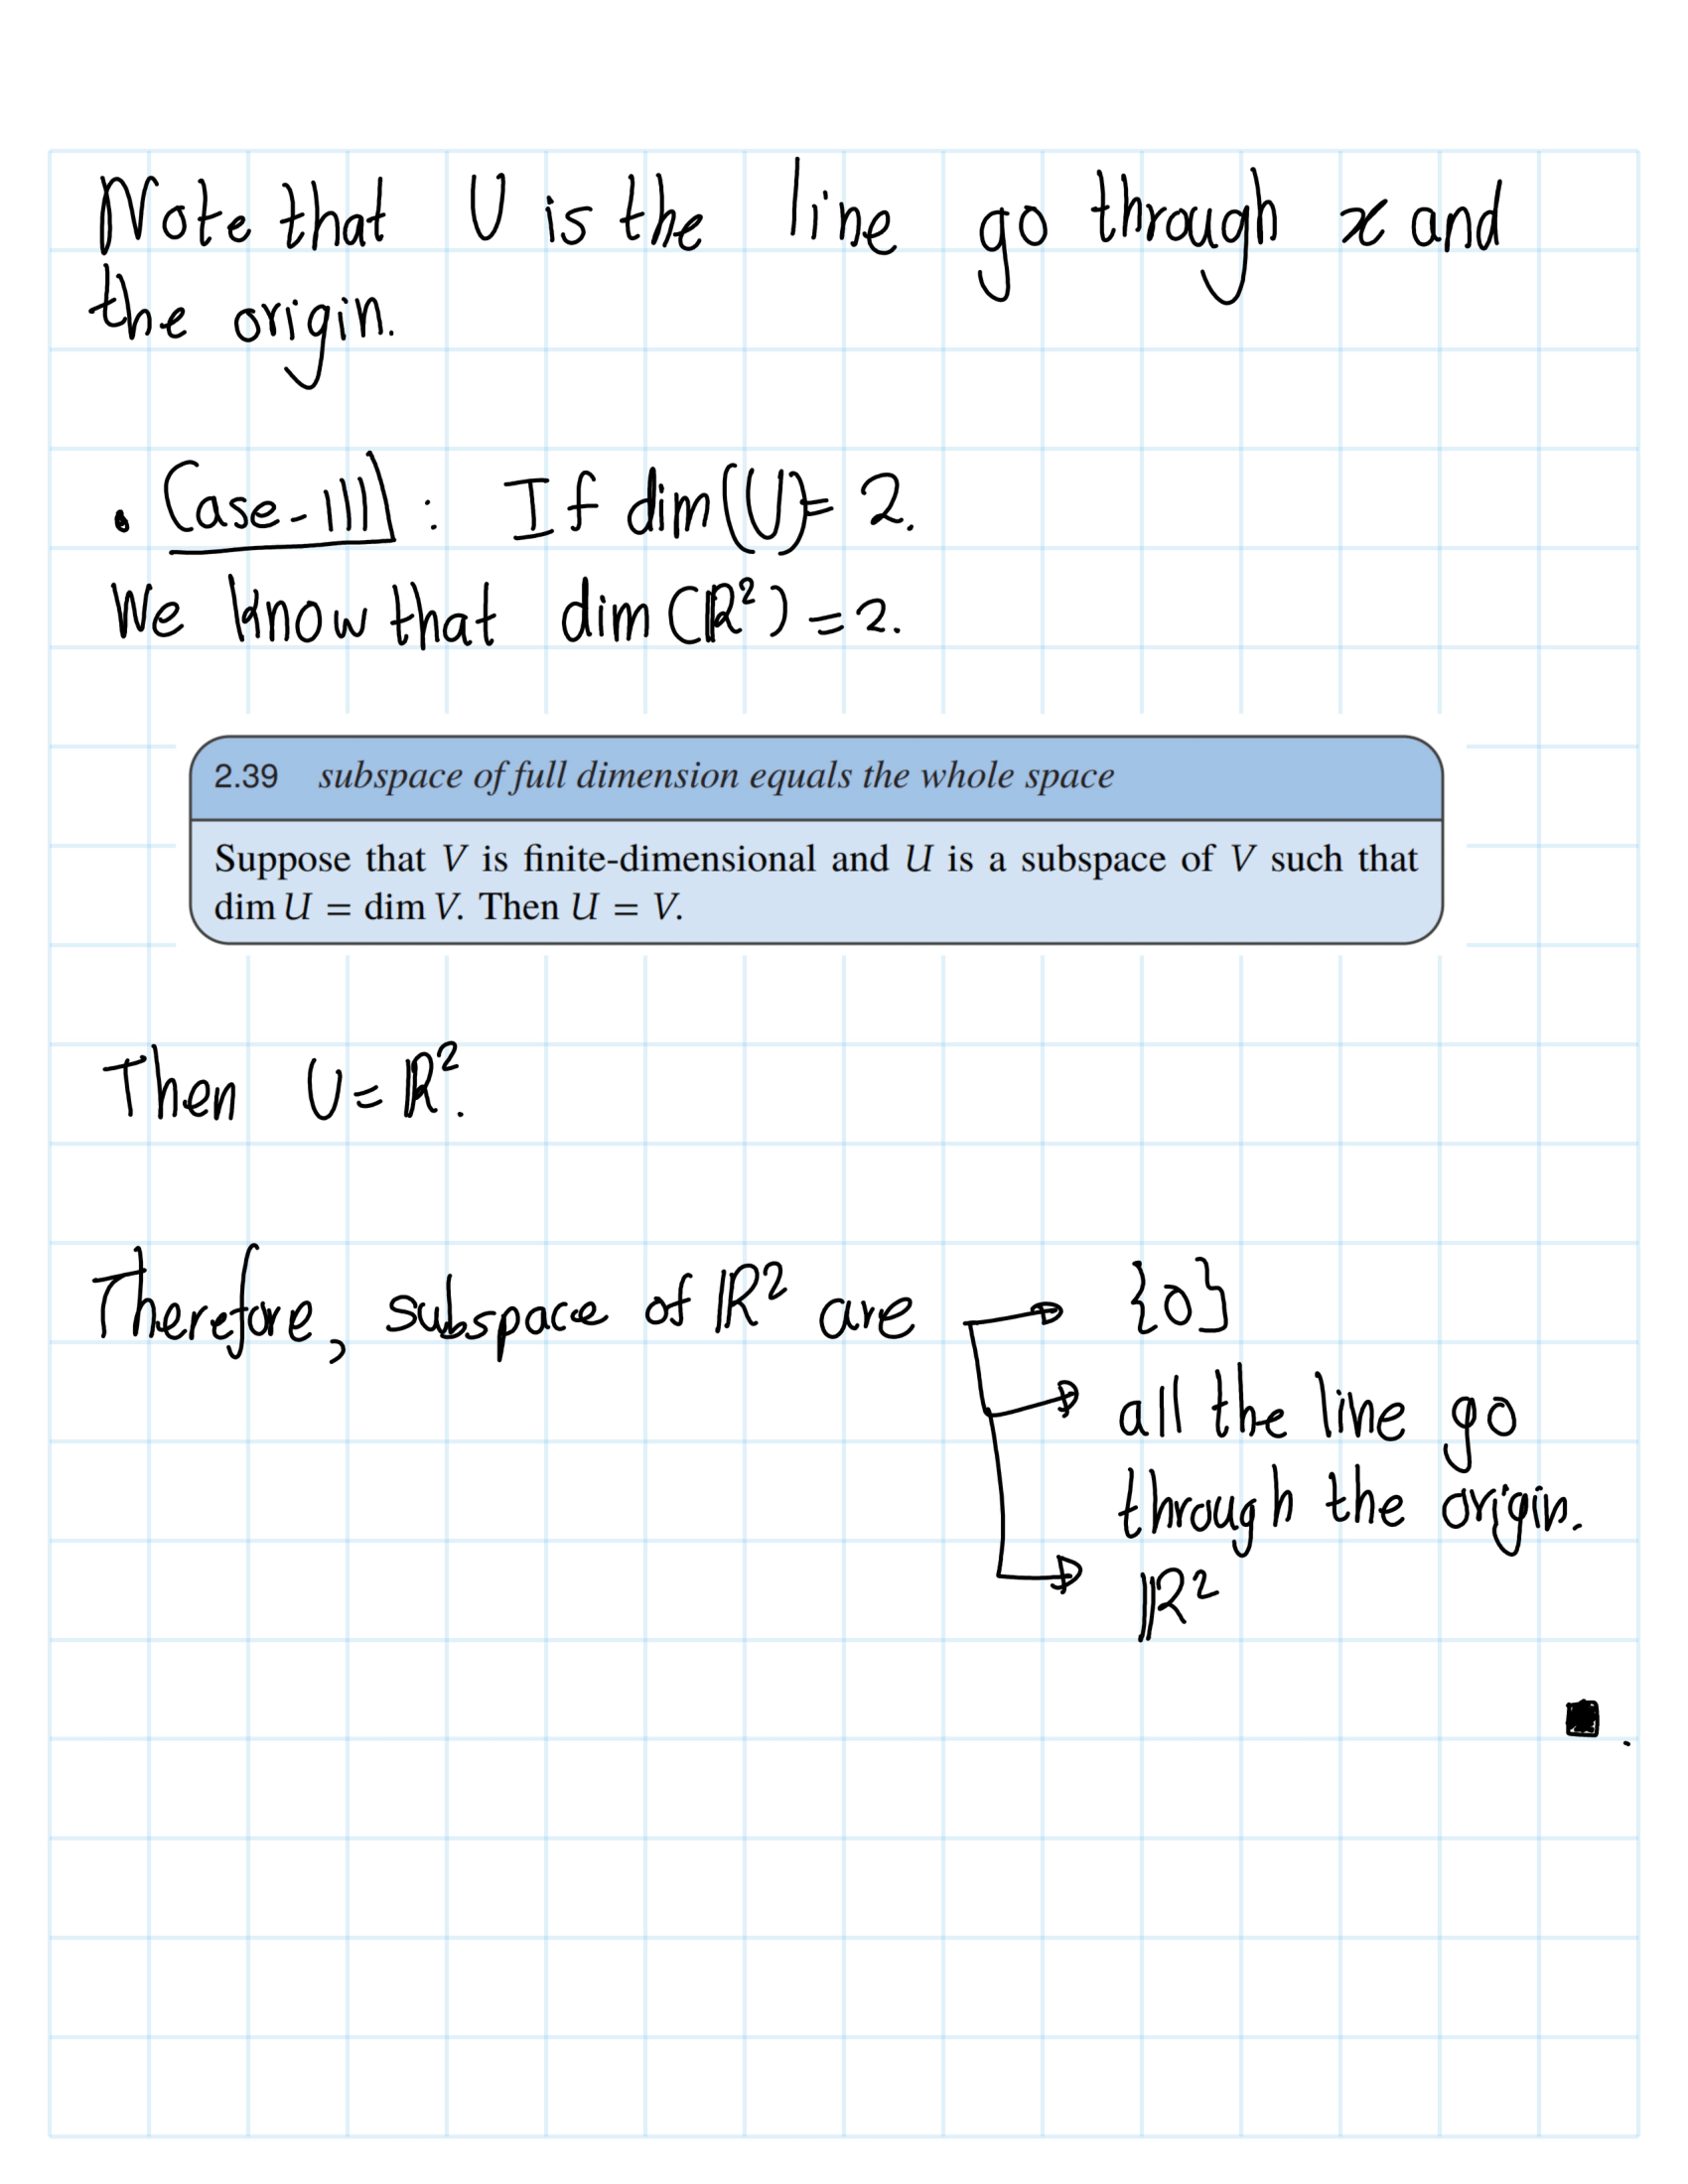 Note that U is the line go through x and
the origin.
• Case-III : If dim(U)= 2.
We know that dim(ℝ²) = 2.
2.39 subspace of full dimension equals the whole space
Suppose that V is finite-dimensional and U is a subspace of V such that
dim U = dim V. Then U = V.
Then U = ℝ².
Therefore, subspace of ℝ² are → {0}
→ all the line go
through the origin.
→ ℝ²
■.